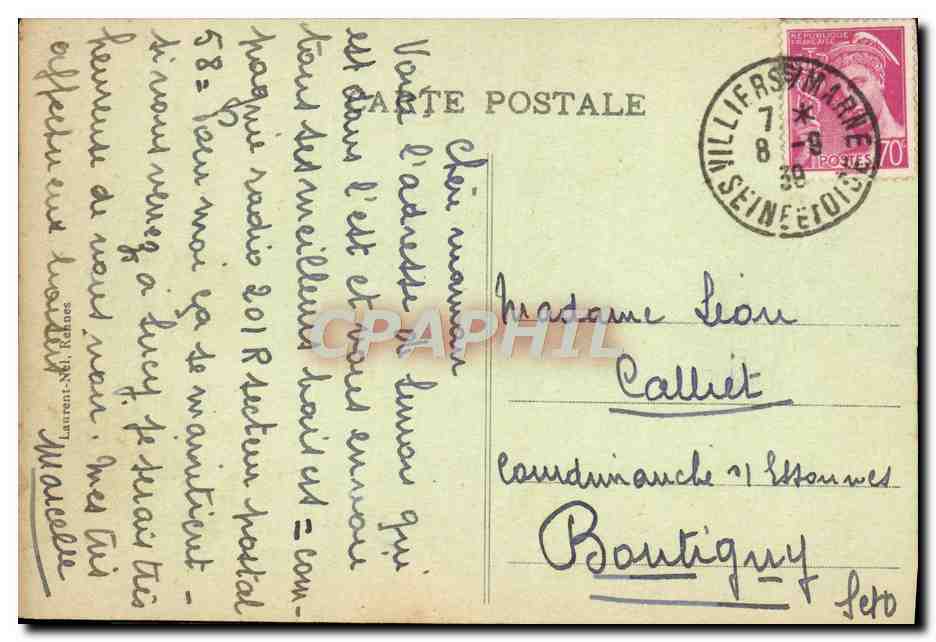 CARTE POSTALE
RÉPUBLIQUE
FRANÇAISE
POSTES
70c
VILLIERS S/MARNE
7 *
8 -9
39
SEINE ET OISE
Chère maman
Voici l'adresse de Simon qui
est dans l'est et vous envoie
tous ses meilleurs baisers = com-
pagnie radio 201 R secteur postal
58 = Pour moi ça se maintient -
si vous venez à Lucy je serais très
heureuse de vous voir. Mes très
affectueux baisers
Marcelle
Madame Léon
Calliet
Courdimanche s/ Essonnes
Boutigny
S et O
Laurent-Nel, Rennes
CPAPHIL